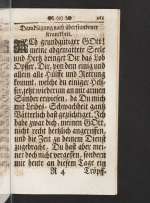 Dancksagung nach überstandener
Kranckheit.
ACh grundgütiger GOtt!
meine abgemattete Seele
und Hertz bringet Dir das Lob
Opffer, Dir, von dem einig und
allein alle Hülffe und Rettung
kommt, welche du einiger Helf-
fer jetzt wiederum an mir armen
Sünder erwiesen, da Du mich
mit Leibes-Schwachheit gantz
Väterlich hast gezüchtiget. Ich
habe zwar dich, meinen GOtt,
nicht recht hertzlich angeruffen,
und die Zeit in deinem Dienst
zugebracht. Du hast aber mei-
ner doch nicht vergessen, sondern
mir heute an diesem Tage ein
R 4 Tröpff-